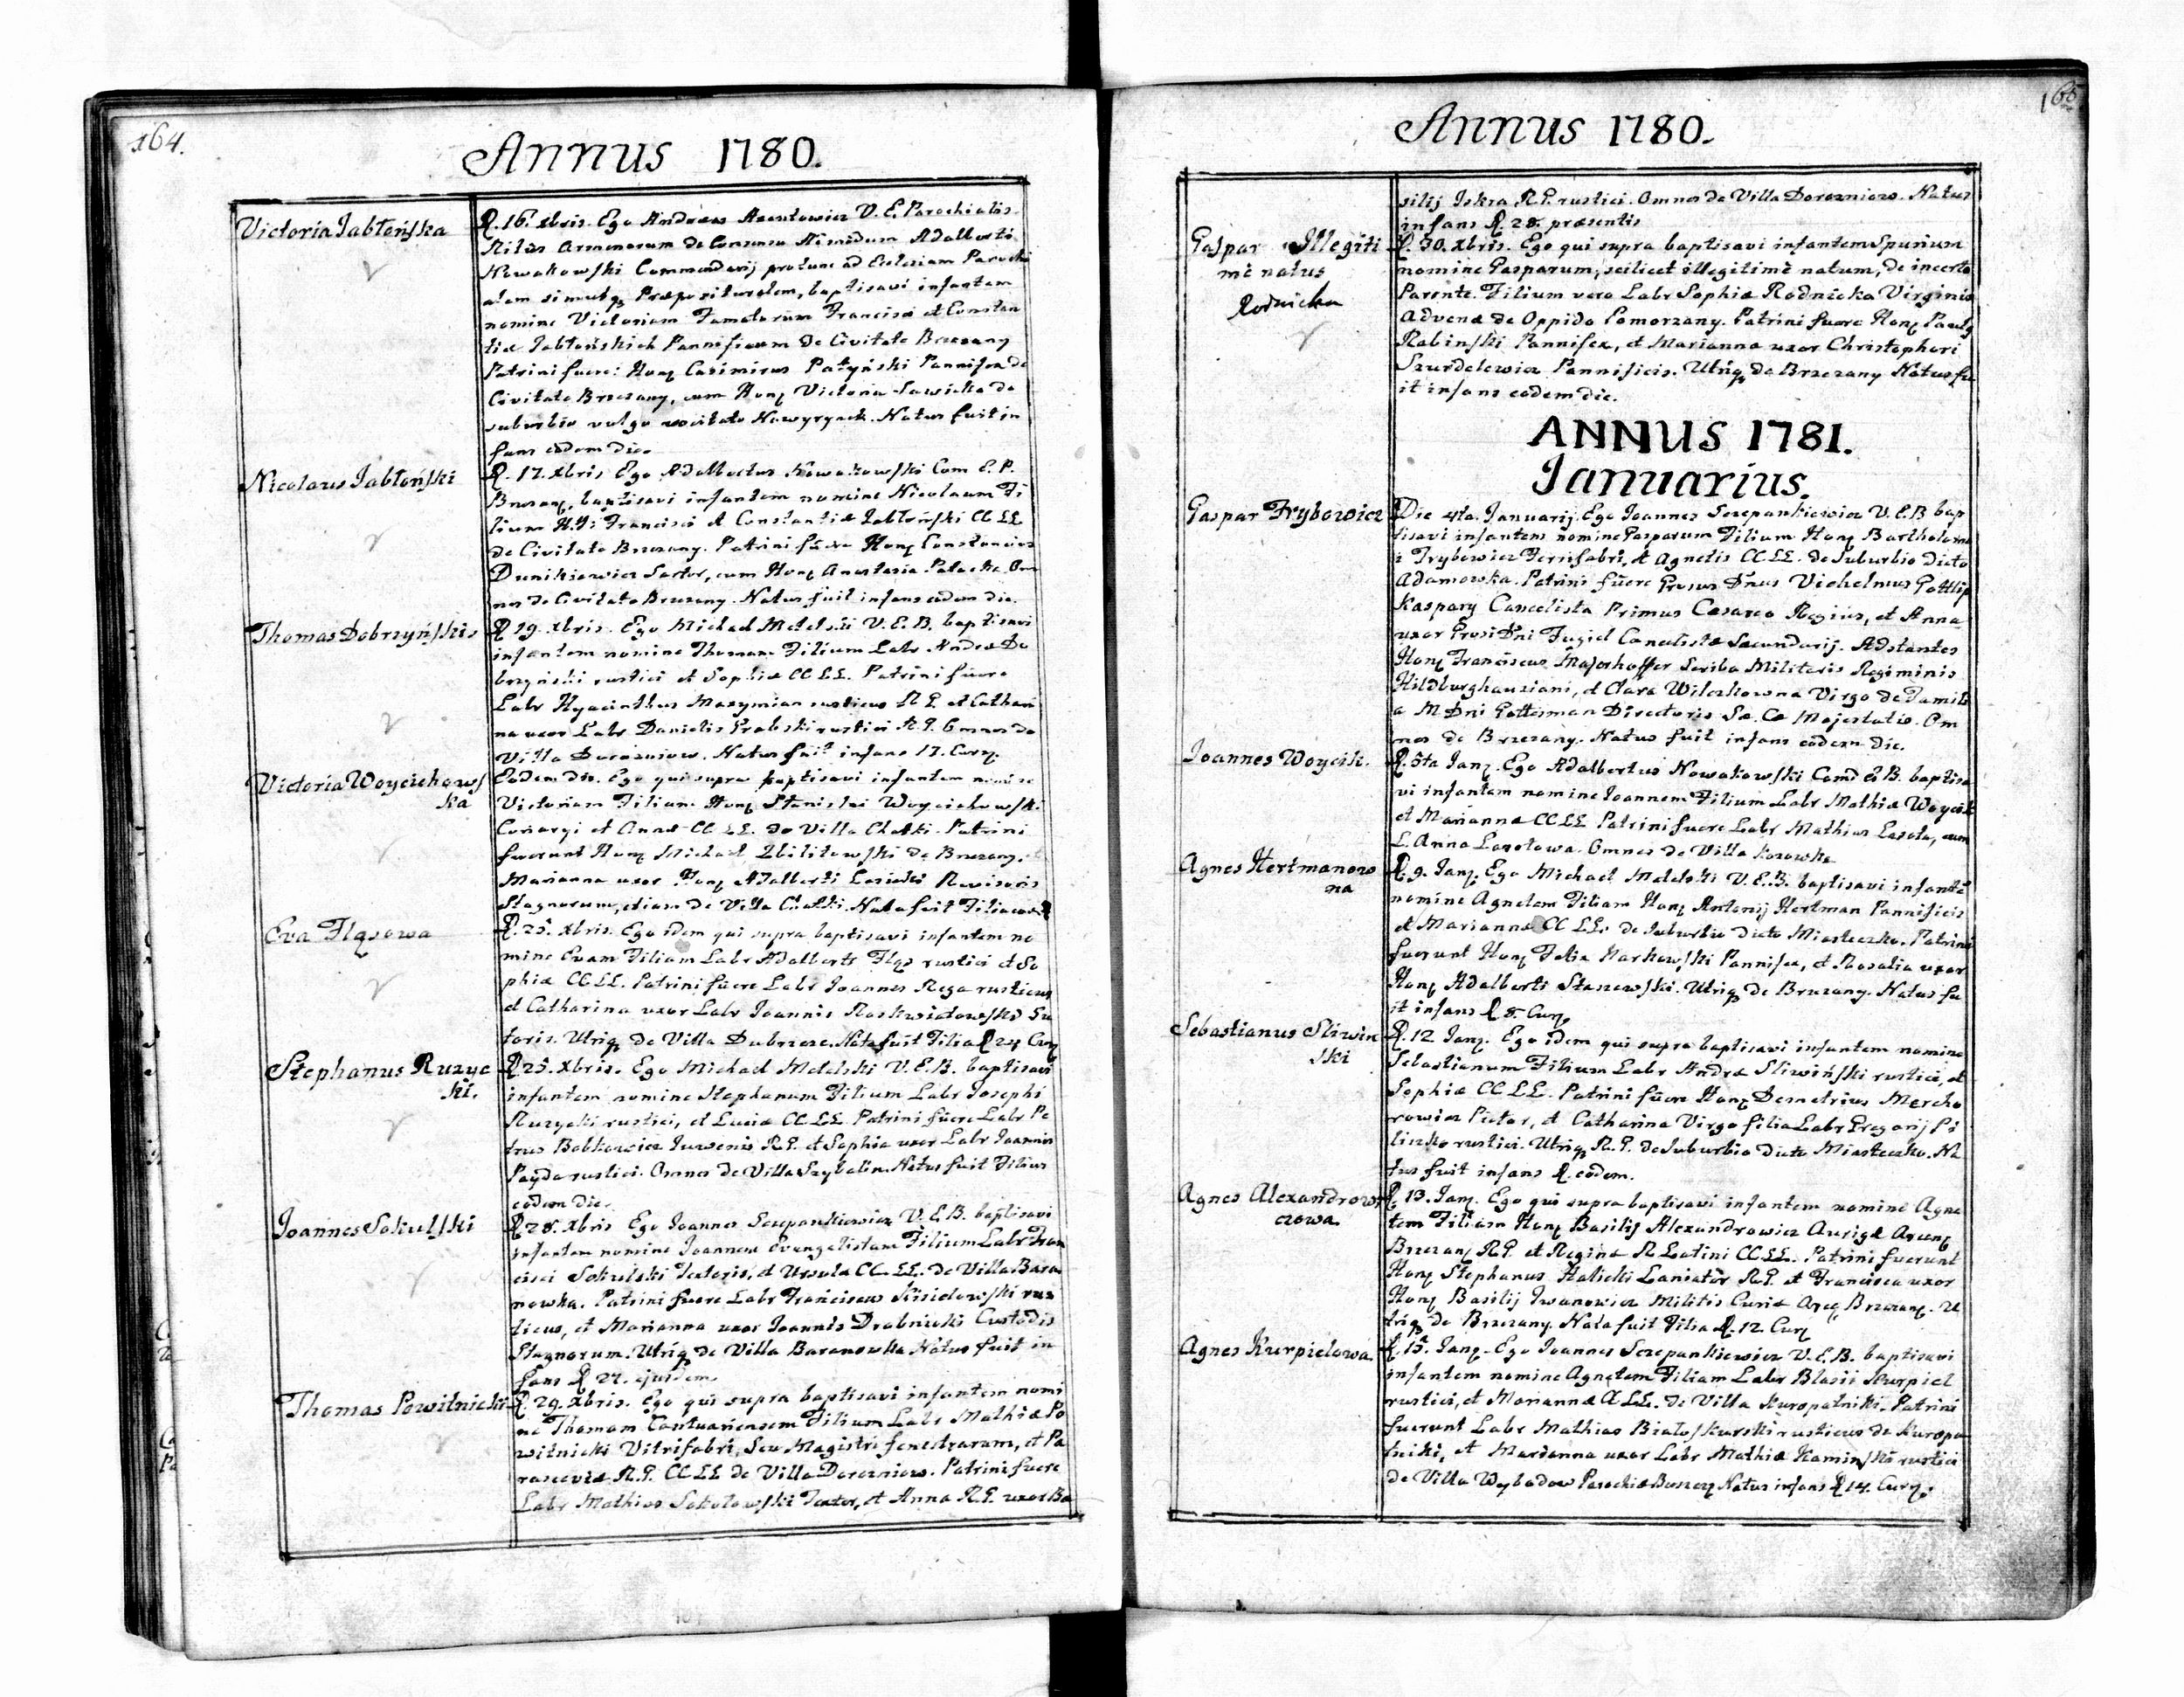 164.
Annus 1780.
Victoria Jabłońska
D. 16. xbris. Ego Andreas V. E. Parochialis
Ritus Armenorum de Consensu Adalberti
Nowakowski Commendarij protunc ad Ecclesiam Parochi
alem simulq Praepositurelem, baptisavi infantem
nomine Victoriam Famatorum Francisci et Constan
tiæ Jabłońskich Pannificum de Civitate Brzezany
Patrini fuere: Hon Casimirus Patyński Pannifex de
Civitate Brzezany, cum Hon Victoria Sawicka de
suburbio vulgo vocitato Nowyrynek. Natus fuit in
fans eodem die.
Nicolaus Jabłoński
D. 17. xbris. Ego Adalbertus Nowakowski Com E. P.
Brzezan, baptisavi infantem nomine Nicolaum Fi
lium Francisci et Constantiæ Jabłoński CC LL
de Civitate Brzezany. Patrini fuere Hon Constancius
Dunikiewicz Sartor, cum Hon Anastasia Om
nes de Civitate Brzezany. Natus fuit infans eodem die.
Thomas Dobrzyński
D. 19. xbris. Ego Michael Melelski V. E. B. baptisavi
infantem nomine Thomam Filium Labr Andreæ Do
brzyński rustici et Sophiæ CC LL. Patrini fuere
Labr Hyacinthus Mazymian rusticus R G. et Cathari
na uxor Labr Danielis Grabski rustici R. G. Omnes de
Villa Dorozniow. Natus fuit infans 17. Curr.
Victoria Woyciehows
ka
Eodem die. Ego qui supra baptisavi infantem nomine
Victoriam Filiam Hon Stanislai Woyciehowski
et Annæ CC LL. de Villa Chatki. Patrini
fuerunt Hon Michael Zbilitowski de Brzezany, et
Marianna uxor Hon Adalberti Lasiecki Revisoris
Stagnorum, etiam de Villa Chatki. Nata fuit Filia
Eva Flasowa
D. 25. xbris. Ego idem qui supra baptisavi infantem no
mine Evam Filiam Labr Adalberti rustici et So
phiæ CC LL. Patrini fuere Labr Joannes Rega rusticus
et Catharina uxor Labr Joannis Su
toris. Utriq de Villa Dubrzcze. Nata fuit Filia D 24 Curr
Stephanus Ruzyc
ki.
D. 25. xbris. Ego Michael Melelski V. E. B. baptisavi
infantem nomine Stephanum Filium Labr Josephi
Ruzycki rustici, et Luciæ CC LL. Patrini fuere Labr Pe
trus Bobkowicz Juvenis R G. et Sophia uxor Labr Joannis
Payda rustici. Omnes de Villa Szybalin. Natus fuit Filius
eodem die.
Joannes Sokulski
D 28. xbris Ego Joannes Szczepankiewicz V. E. B. baptisavi
infantem nomine Joannem Evangelistam Filium Labr Fran
cisci Sokulski Textoris, et Ursulæ CC. LL. de Villa Bara
nowka. Patrini fuere Labr Franciscus Kisielowski rus
ticus, et Marianna uxor Joannis Drabnicki Custodis
Stagnorum. Utriq de Villa Baranowka Natus fuit in
fans D 27. ejusdem
Thomas Powitnicki
D. 29. xbris. Ego qui supra baptisavi infantem nomi
ne Thomam Cantuariensem Filium Labr Mathiæ Po
witnicki Vitrifabri, Seu Magistri fenestrarum, et Pa
rasceviæ R. G. CC LL de Villa Dorozniow. Patrini fuere
Labr Mathias Sokołowski Textor, et Anna R. G. uxor Ba
165
Annus 1780.
silij Iskra R G. rustici. Omnes de Villa Dorozniow. Natus
infans D. 28. præsentis
Gaspar Illegiti
mè natus
Rodnicka
D. 30. Xbris. Ego qui supra baptisavi infantem Spurium
nomine Gasparum, scilicet illegitimè natum, de incerto
Parente. Filium vero Labr Sophiæ Rodnicka Virginis
Advenæ de Oppido Pomorzany. Patrini fuere Hon Paulq
Rabinski Pannifex, et Marianna uxor Christophori
Szurdelewicz Pannificis. Utriq de Brzezany Natus fu
it infans eodem die.
ANNUS 1781.
Ianuarius.
Gaspar Trybowicz
Die 4ta. Januarij. Ego Joannes Szczepankiewicz V. E. B bap
tisavi infantem nomine Gasparum Filium Hon Bartholomæ
i Trybowicz Ferrifabri, et Agnetis CC LL. de Suburbio dicto
Adamowka. Patrini fuere Grosus Dnus Vichelmus Gottlip
Kaspary Cancelista Primus Cæsareo Regius, et Anna
uxor Grosi Dni Fugiel Cancelistæ Secundarij. Adstantes
Hon Franciscus Majorhoffer Scriba Militaris Regiminis
Hildburghauziani, et Clara Wilczkowna Virgo de Famili
a M Dni Gotterman Directoris Sæ. Cæ Majestatis. Om
nes de Brzezany. Natus fuit infans eodem die.
Joannes Woycik.
D. 5ta Jan. Ego Adalbertus Nowakowski Comd E B. baptisa
vi infantem nomine Joannem Filium Labr Mathiæ Woycik
et Mariannæ CC LL Patrini fuere Labr Mathias Lasota, cum
L. Anna Lasotowa. Omnes de Villa Kozowka
Agnes Hertmanow
na
D. 9. Jan. Ego Michael Melelski V. E. B. baptisavi infantē
nomine Agnetem Filiam Hon Antonij Hertman Pannificis
et Mariannæ CC LL. de Suburbio dicto Miasteczko. Patrini
fuerunt Hon Felix Markowski Pannifex, et Rosalia uxor
Hon Adalberti Staszewski. Utriq de Brzezany. Natus fu
it infans D 8. Curr.
Sebastianus Sliwin
ski
D. 12 Jan. Ego idem qui supra baptisavi infantem nomine
Sebastianum Filium Labr Andreæ Sliwiński rustici, et
Sophiæ CC LL. Patrini fuere Hon Demetrius Mercho
rowicz Pictor, et Catharina Virgo filia Labr Gregorij Pi
linzko rustici. Utriq R. G. de Suburbio dicto Miasteczko. Na
tus fuit infans D. eodem.
Agnes Alexandrowi
czowa.
D. 13. Jan. Ego qui supra baptisavi infantem nomine Agne
tem Filiam Hon Basilij Alexandrowicz Aurigæ Arcen
Brzezan R G. et Reginæ R Latini CC LL. Patrini fuerunt
Hon Stephanus Halicki Laniator R G. et Francisca uxor
Hon Basilij Iwanowicz Militis Curiæ Arcę Brzezan. U
triq de Brzezany. Nata fuit Filia D. 12. Curr
Agnes Kurpielowa.
D. 15. Jan. Ego Joannes Szczepankiewicz V. E. B. baptisavi
infantem nomine Agnetem Filiam Labr Blasii Kurpiel
rustici, et Mariannæ CC LL. de Villa Kuropatniki. Patrini
fuerunt Labr Mathias Białoskurski rusticus de Kuropa
tniki, et Marianna uxor Labr Mathiæ Kaminski rustici
de Villa Wybudow Parochiæ Natus infans D 14. Curr.